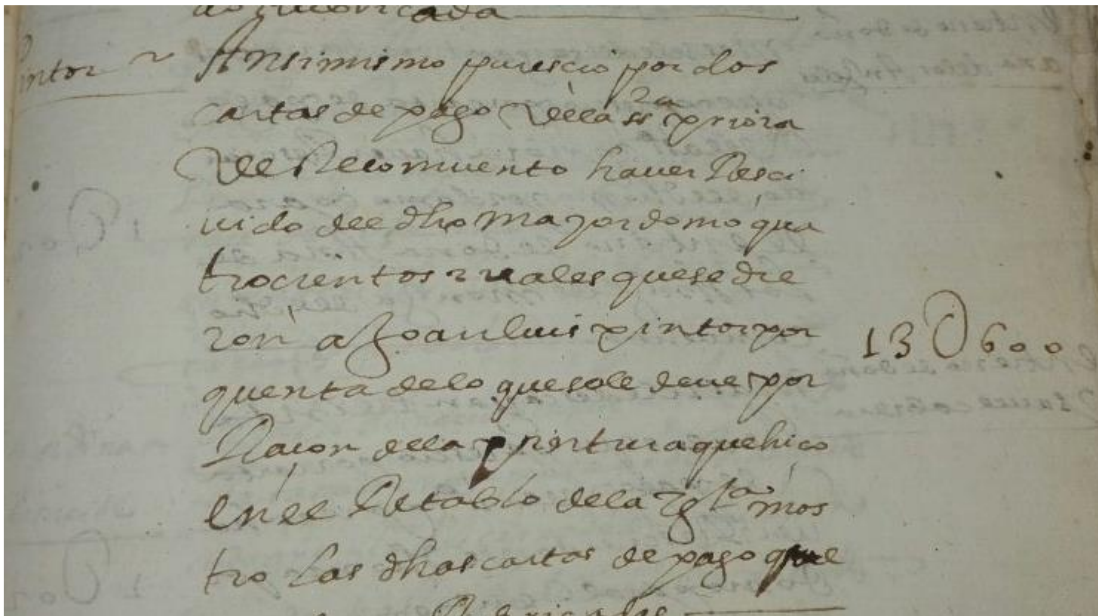 do y rubricada
pintor ~ Ansimismo parescio por dos
cartas de pago de la sra priora
de el conuento hauer Resci
uido del dho mayordomo qua
trocientos rreales que se die
ron a Joan luis pintor por
quenta de lo que se le deue por
Raçon de la pintura que hiço
en el Retablo de la yglia mos
tro las dhas cartas de pago que
13U600